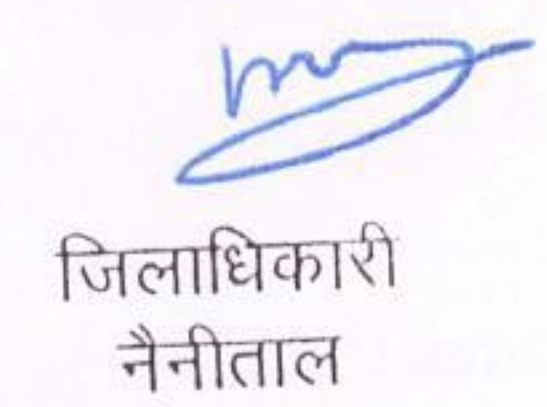 जिलाधिकारी
नैनीताल